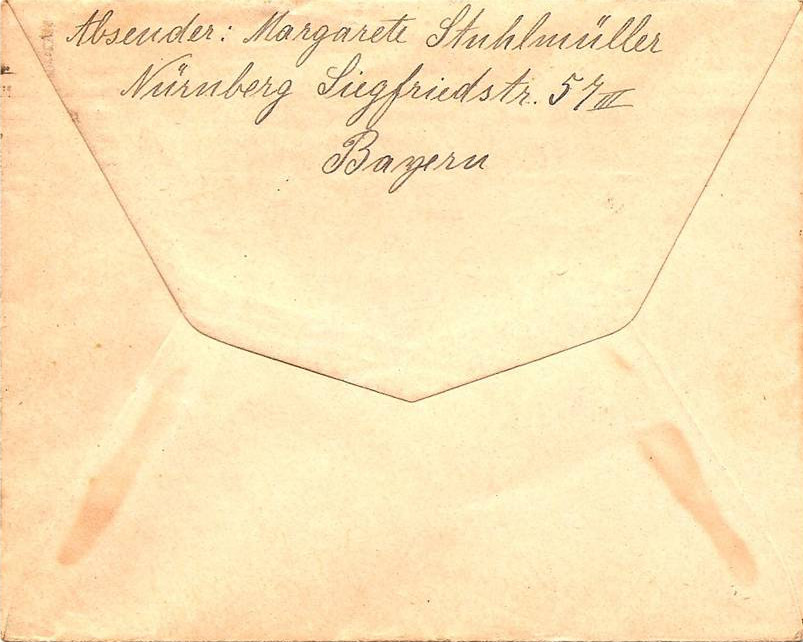 Absender: Margarete Stuhlmüller
Nürnberg Siegfriedstr. 57 III
Bayern